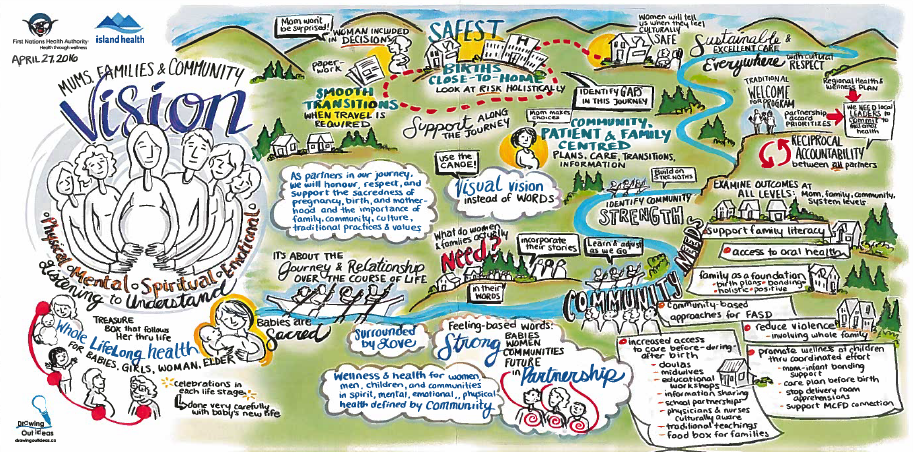 First Nations Health Authority
Health through wellness
island health
APRIL 27, 2016
MUMS, FAMILIES & COMMUNITY
Vision
Physical • Mental • Spiritual • Emotional
listening to Understand
TREASURE
BOX that follows
Her thru life
Whole Lifelong health
FOR BABIES, GIRLS, WOMAN, ELDER
celebrations in
each life stage.
done very carefully
with baby's new life.
Drawing
Out ideas
drawingoutideas.ca
Mom won't
be surprised!
WOMAN INCLUDED
IN DECISIONS
paper
work
SMOOTH
TRANSITIONS
WHEN TRAVEL IS
REQUIRED
SAFEST
H
BIRTHS
CLOSE-TO-HOME
LOOK AT RISK HOLISTICALLY
Women will tell
us when they feel
CULTURALLY
SAFE
Sustainable &
EXCELLENT CARE
Everywhere with cultural
RESPECT
IDENTIFY GAPS
IN THIS JOURNEY
Support ALONG
THE JOURNEY
Mom makes
choices
COMMUNITY,
PATIENT & FAMILY
CENTRED
PLANS, CARE, TRANSITIONS,
INFORMATION
TRADITIONAL
WELCOME
FOR PROGRAM
Regional Health &
Wellness PLAN
partnership
accord
PRIORITIZES
WE NEED local
LEADERS to
COMMIT to
health
RECIPROCAL
ACCOUNTABILITY
between all partners
As partners in our journey.
we will honour, respect, and
support the sacredness of
pregnancy, birth, and mother-
hood and the importance of
family, community, culture,
traditional practices & values
USE THE
CANOE!
Visual vision
instead of WORDS
Build on
STRENGTHS
IDENTIFY COMMUNITY
STRENGTH
EXAMINE OUTCOMES AT
ALL LEVELS: Mom, family, community,
System levels
support family literacy
access to oral health
family as a foundation
- birth plans - bonding
- holistic - positive
IT'S ABOUT THE
Journey & Relationship
OVER THE COURSE OF LIFE
What do women
& families actually
Need?
in their
WORDS
incorporate
their stories
Learn & adjust
as we Go
COMMUNITY NEEDS
Babies are
Sacred
Surrounded
by Love
Feeling-based words:
Strong
BABIES
WOMEN
COMMUNITIES
FUTURE
in Partnership
Wellness & health for women,
men, children, and communities
in spirit, mental, emotional,, physical
health defined by community
community-based
approaches for FASD
reduce violence
- involving whole family
increased access
to care before-during-
after birth
- doulas
- midwives
- educational
workshops
- information sharing
- school partnerships
- physicians & nurses
culturally aware
- traditional teachings
- food box for families
promote wellness of children
thru coordinated effort
- mom-infant bonding
support
- care plan before birth
- stop delivery room
apprehensions
- support MCFD connection